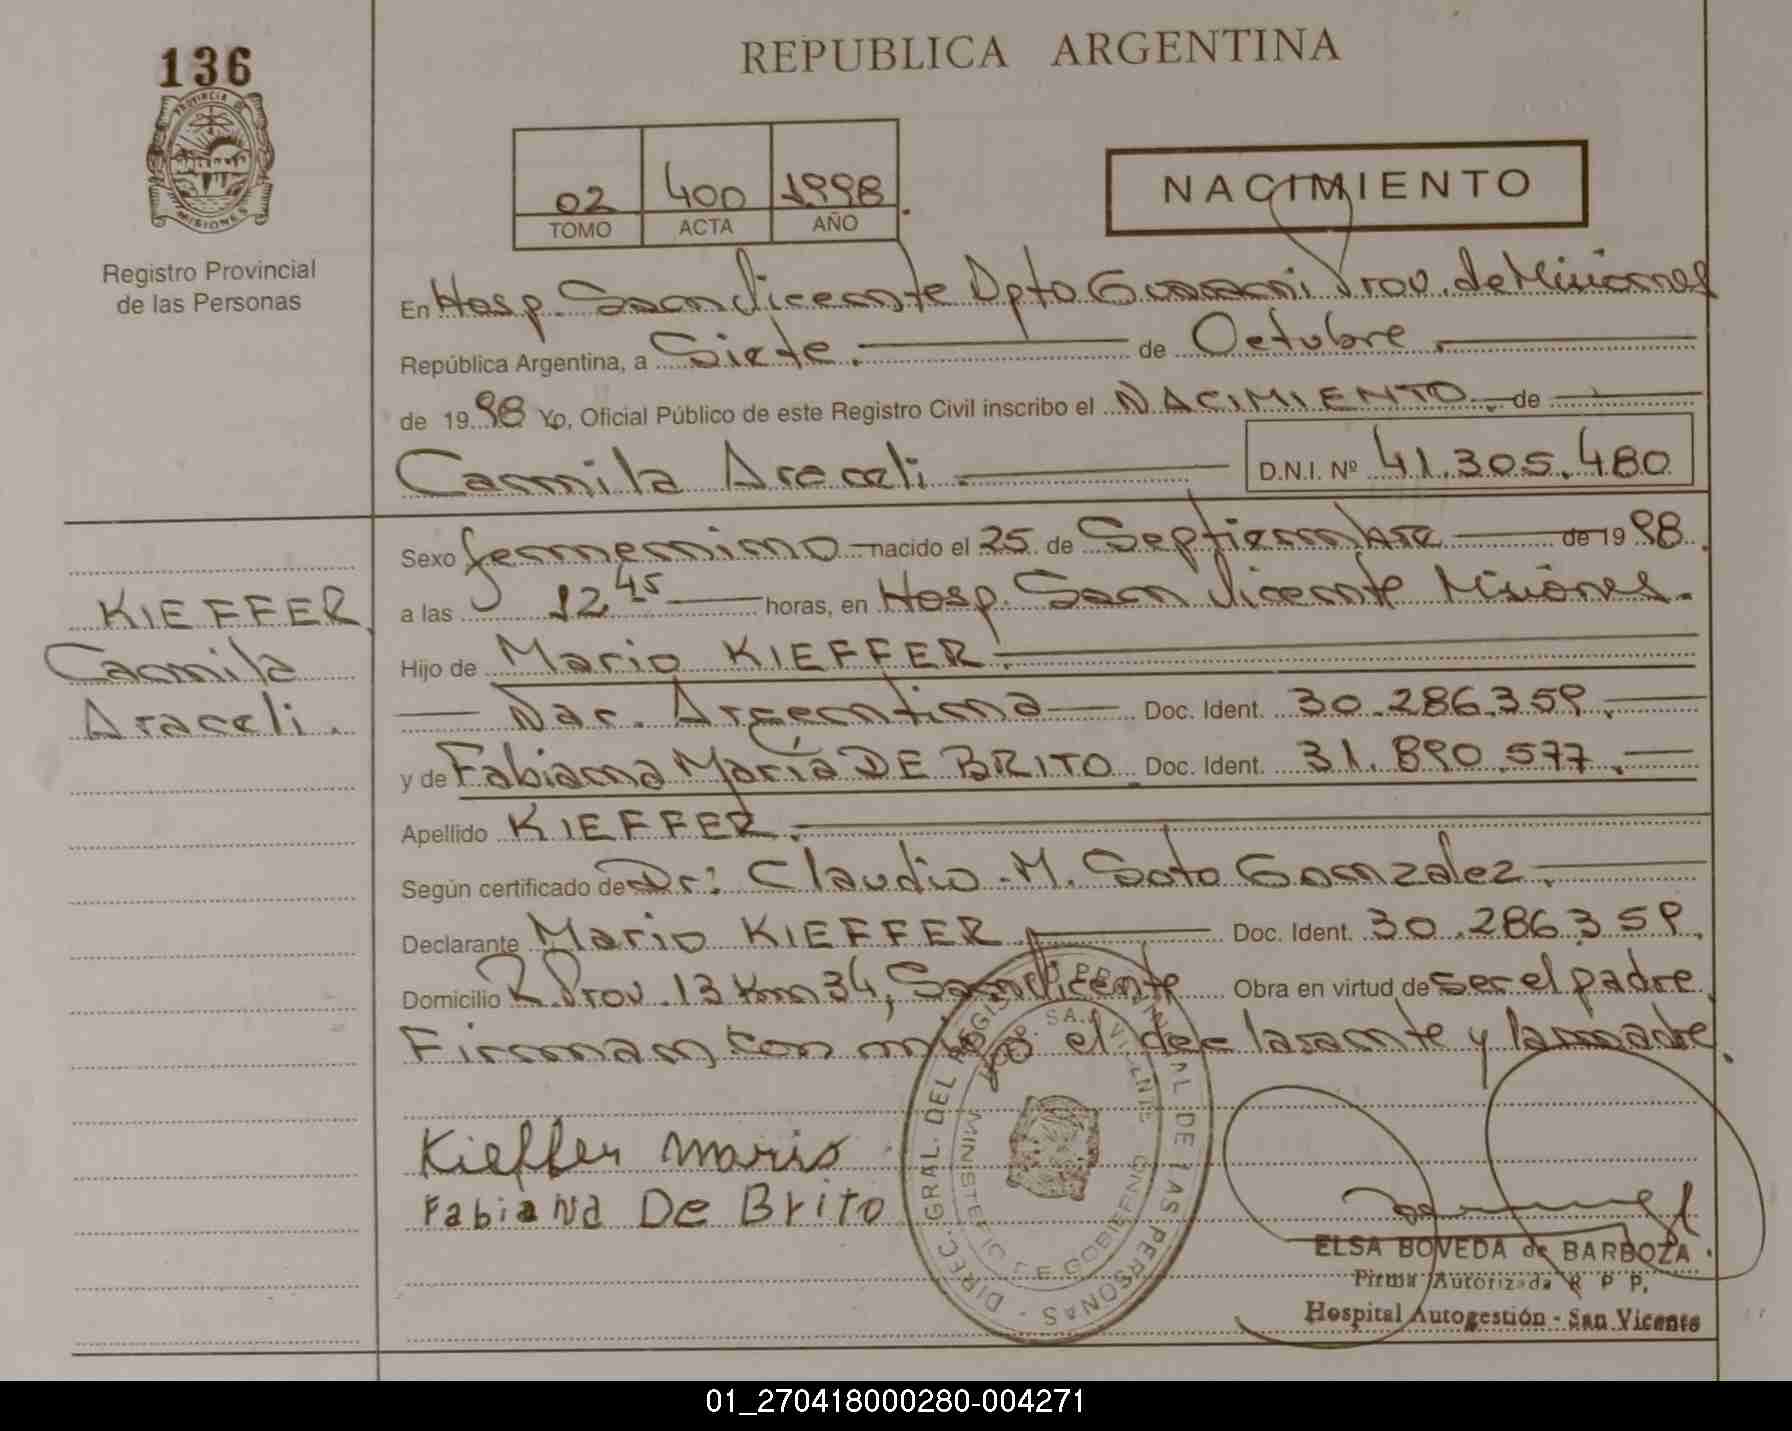 136
PROVINCIA DE
MISIONES
Registro Provincial
de las Personas
REPUBLICA ARGENTINA
02 400 1998.
TOMO ACTA AÑO
NACIMIENTO
En Hosp. San Vicente Dpto Guarani Prov. de Misiones
República Argentina, a Siete. de Octubre.
de 1998 Yo, Oficial Público de este Registro Civil inscribo el NACIMIENTO. de
Camila Araceli. D.N.I. Nº 41.305.480
Sexo femenino nacido el 25 de Septiembre de 1998.
a las 12 45 horas, en Hosp. San Vicente Misiones.
Hijo de Mario KIEFFER.
Nac. Argentina Doc. Ident. 30.286.359.
y de Fabiana María DE BRITO. Doc. Ident. 31.890.577.
Apellido KIEFFER.
Según certificado de Dr: Claudio M. Soto Gonzalez.
Declarante Mario KIEFFER. Doc. Ident. 30.286.359.
Domicilio R. Prov. 13 Km 34, San Vicente Obra en virtud de ser el padre.
Firman con migo el declarante y la madre.
KIEFFER,
Camila
Araceli.
Kieffer Mario
Fabiana De Brito
DIREC. GRAL. DEL REGISTRO PROVINCIAL DE LAS PERSONAS -
HOSP. SAN VICENTE
MINISTERIO DE GOBIERNO
ELSA BOVEDA de BARBOZA
Firma Autorizada R P P.
Hospital Autogestión - San Vicente
01_270418000280-004271